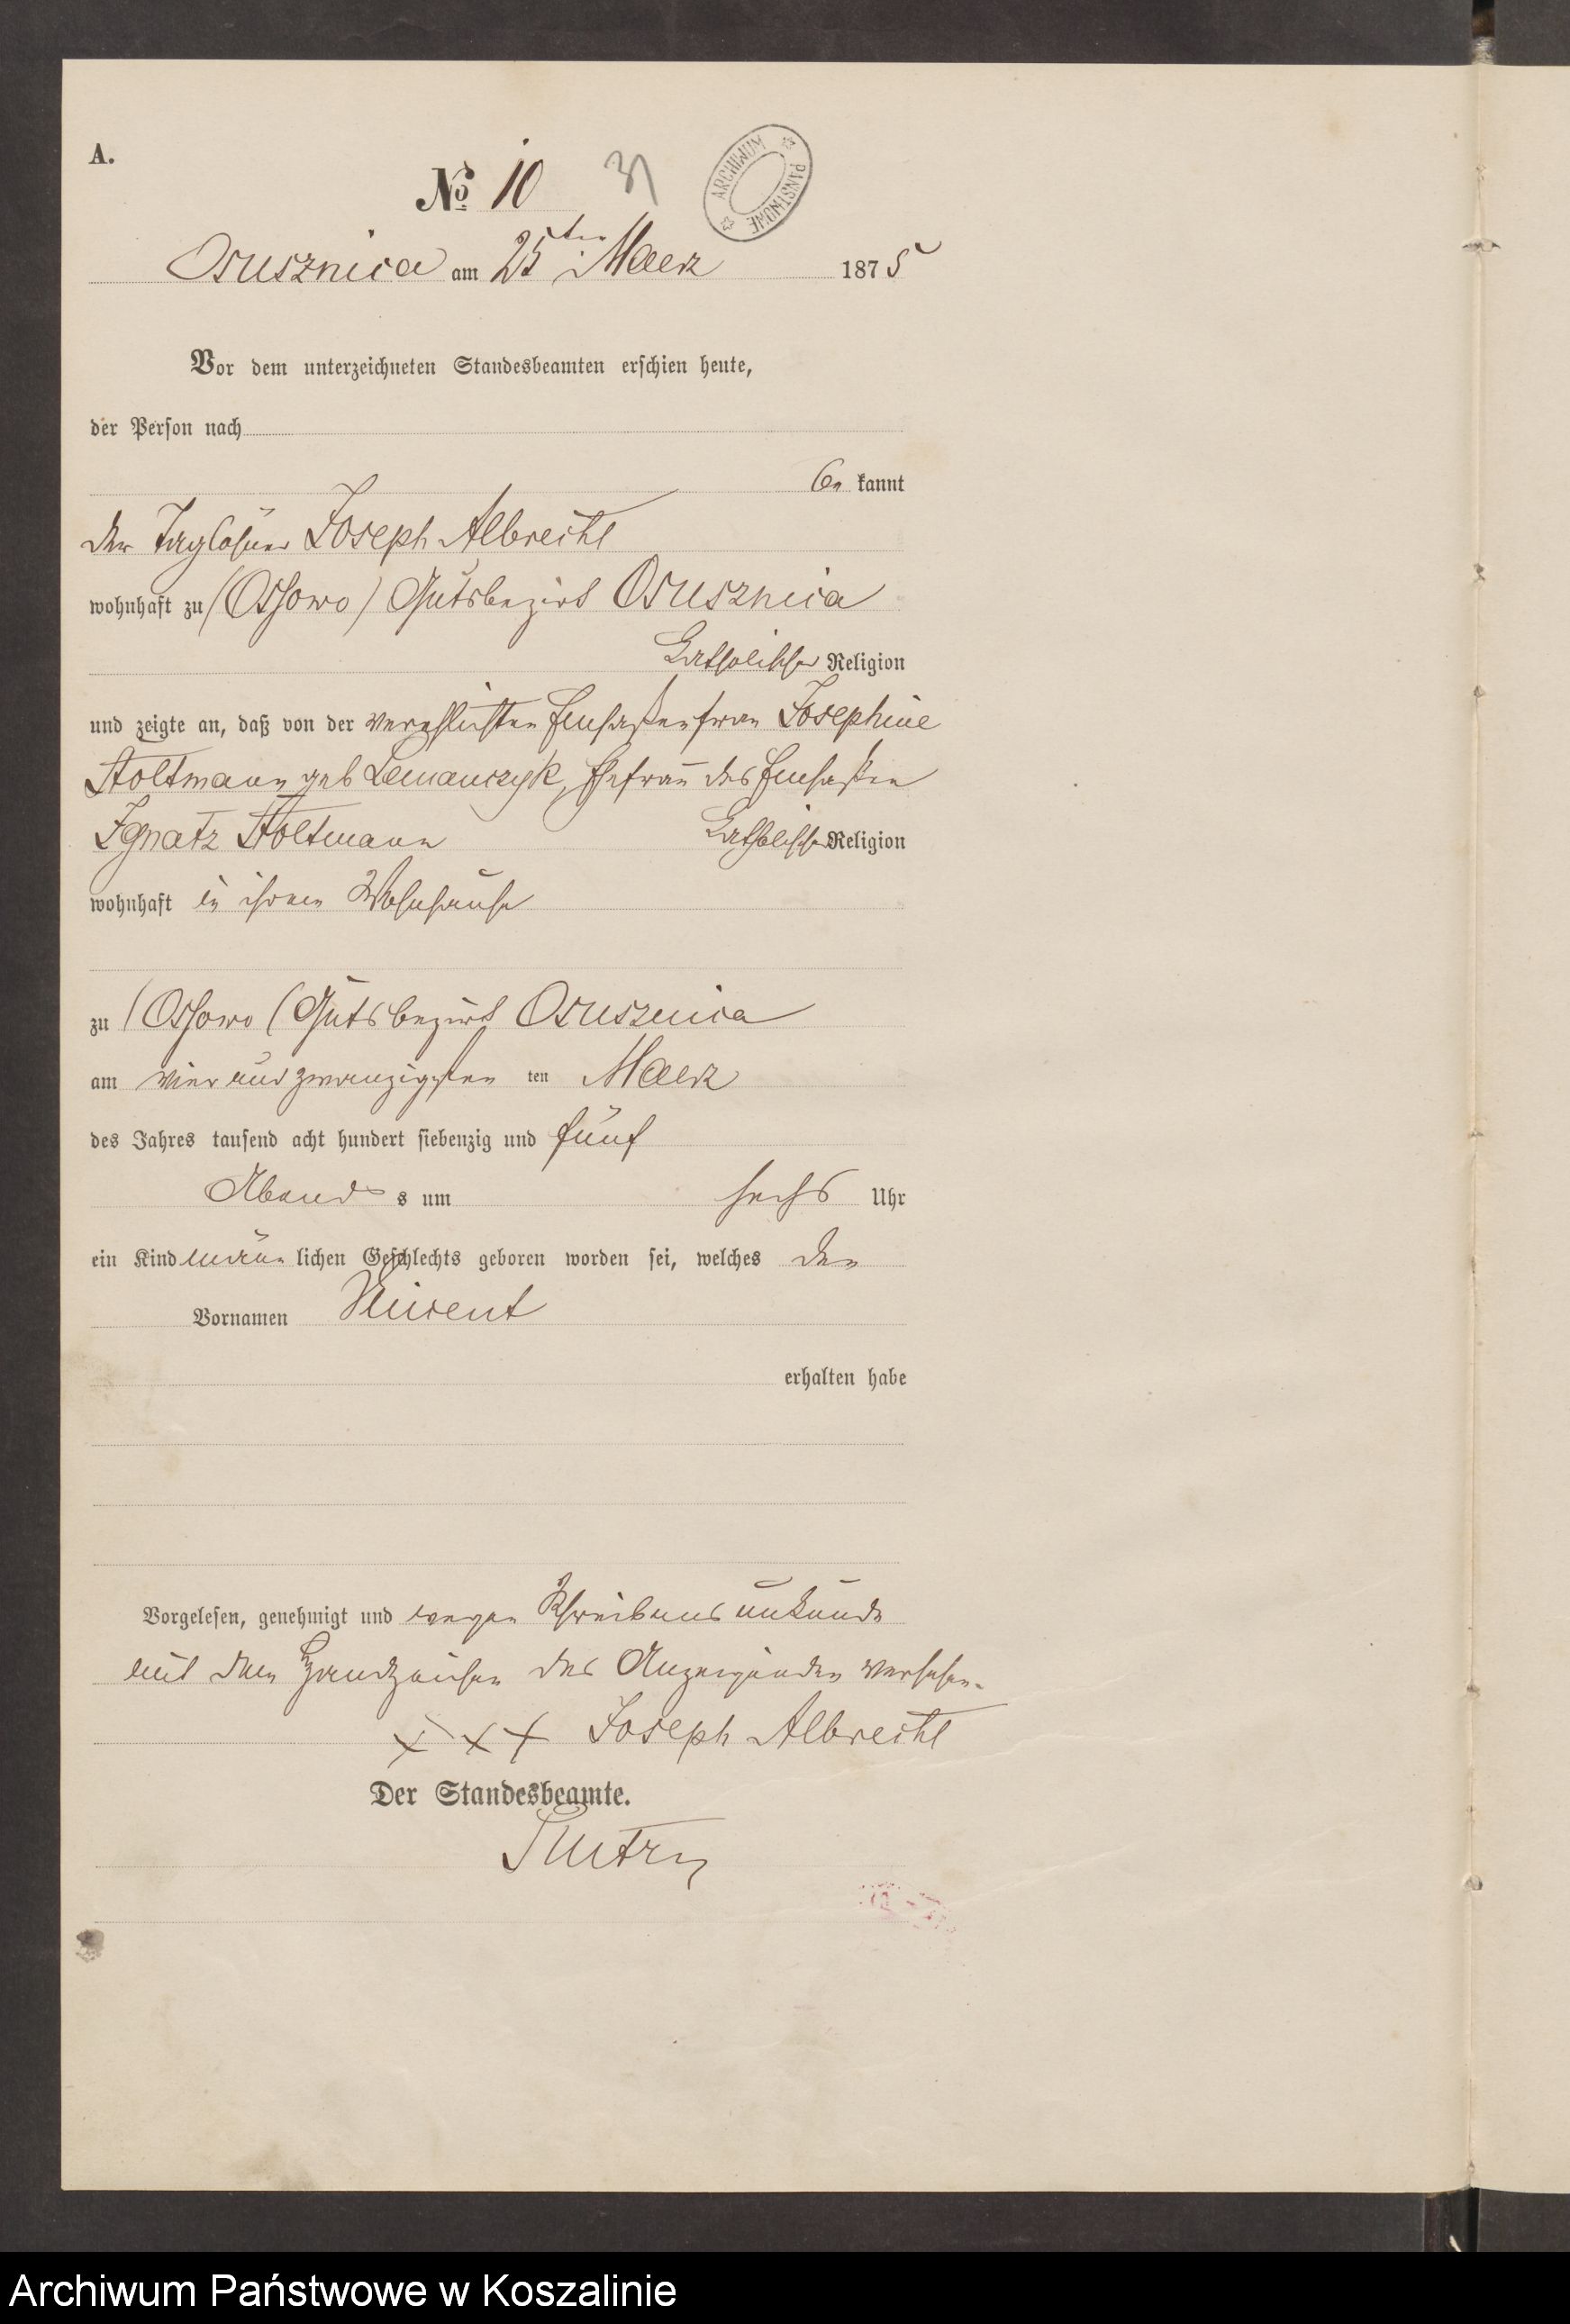 A.
№ 10 31
ARCHIWUM PAŃSTWOWE
Osusznica am 25ten Maerz 1875
Vor dem unterzeichneten Standesbeamten erschien heute,
der Person nach
be kannt
der Taglöhner Joseph Albrecht
wohnhaft zu (Ossowo) Gutsbezirk Osusznica
katholischer Religion
und zeigte an, daß von der verehlichten Einsaßenfrau Josephine
Stoltmann geb Lemanczyk, Ehefrau des Einsaßen
Ignatz Stoltmann katholischer Religion
wohnhaft in ihrem Wohnhause
zu (Ossowo (Gutsbezirk Osusznica
am vier und zwanzigsten ten Maerz
des Jahres tausend acht hundert siebenzig und fünf
Abend s um sechs Uhr
ein Kind männ lichen Geschlechts geboren worden sei, welches den
Vornamen Vincent
erhalten habe
Vorgelesen, genehmigt und wegen Schreibensunkunde
mit dem Handzeichen des Anzeigenden versehen.
x x x Joseph Albrecht
Der Standesbeamte.
Archiwum Państwowe w Koszalinie